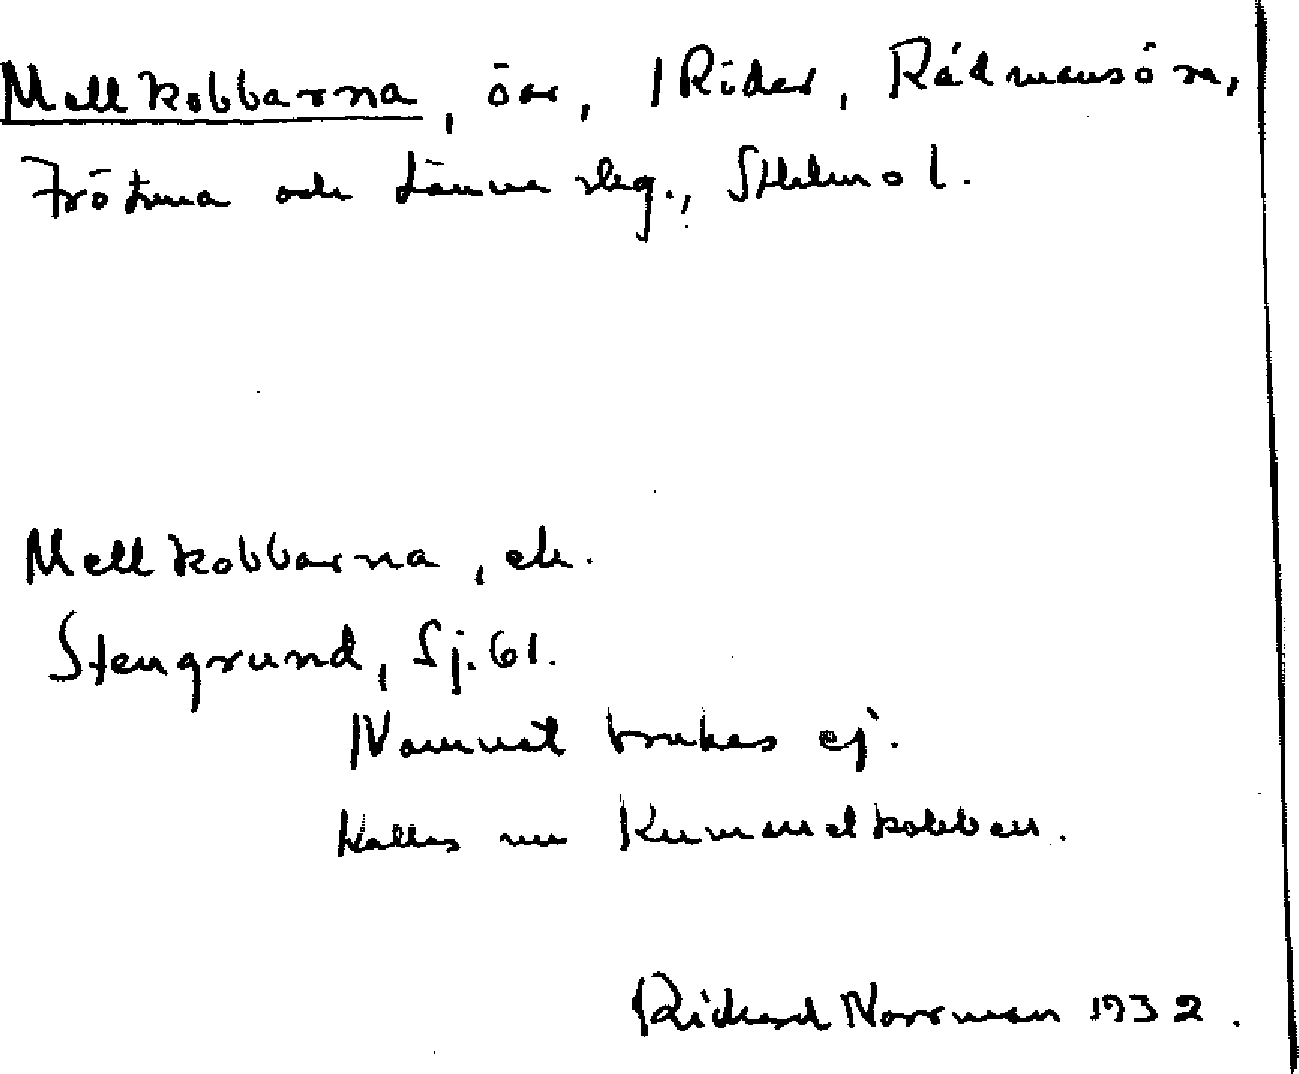 Mellkobbarna, öar, 1 Rider, Rådmansö sn,
Frötuna och Länna skg., Sthlms l.
Mellkobbarna, ek.
Stengrund, Sj. 61.
Namnet brukas ej.
Kallas nu Kummelkobben.
Rickard Norrman 1932.